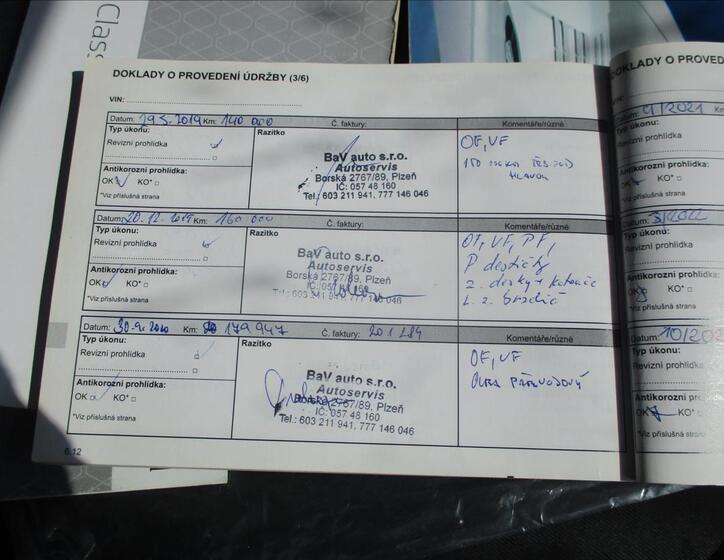 Class
DOKLADY O PROVEDENÍ ÚDRŽBY (3/6)
VIN:
Datum: 29.5.2019 Km: 140 000 Č. faktury: Komentáře/různé
Typ úkonu: Razítko
Revizní prohlídka
Antikorozní prohlídka:
OK KO*
*Viz příslušná strana
BaV auto s.r.o.
Autoservis
Borská 2767/89, Plzeň
IČ: 057 48 160
Tel.: 603 211 941, 777 146 046
OF, VF
HLAVOU
Datum: 20.12.2019 Km: 160 000 Č. faktury: Komentáře/různé
Typ úkonu: Razítko
Revizní prohlídka
Antikorozní prohlídka:
OK KO*
*Viz příslušná strana
BaV auto s.r.o.
Autoservis
Borská 2767/89, Plzeň
IČ: 057 48 160
Tel.: 603 211 941, 777 146 046
OF, VF, PF,
P destičky
z. desky +
Datum: 30.9.2020 Km: 179 947 Č. faktury: Komentáře/různé
Typ úkonu: Razítko
Revizní prohlídka
Antikorozní prohlídka:
OK KO*
*Viz příslušná strana
BaV auto s.r.o.
Autoservis
Borská 2767/89, Plzeň
IČ: 057 48 160
Tel.: 603 211 941, 777 146 046
OF, VF
6.12
DOKLADY O PROVED
VIN:
Datum: 9/2021 Km
Typ úkonu:
Revizní prohlídka
Antikorozní prohlíd
OK KO*
*Viz příslušná strana
Datum: 3/2022
Typ úkonu:
Revizní prohlídka
Antikorozní prohlíd
OK KO*
*Viz příslušná strana
Datum: 10/202
Typ úkonu:
Revizní prohlíd
Antikorozní pr
OK KO*
*Viz příslušná